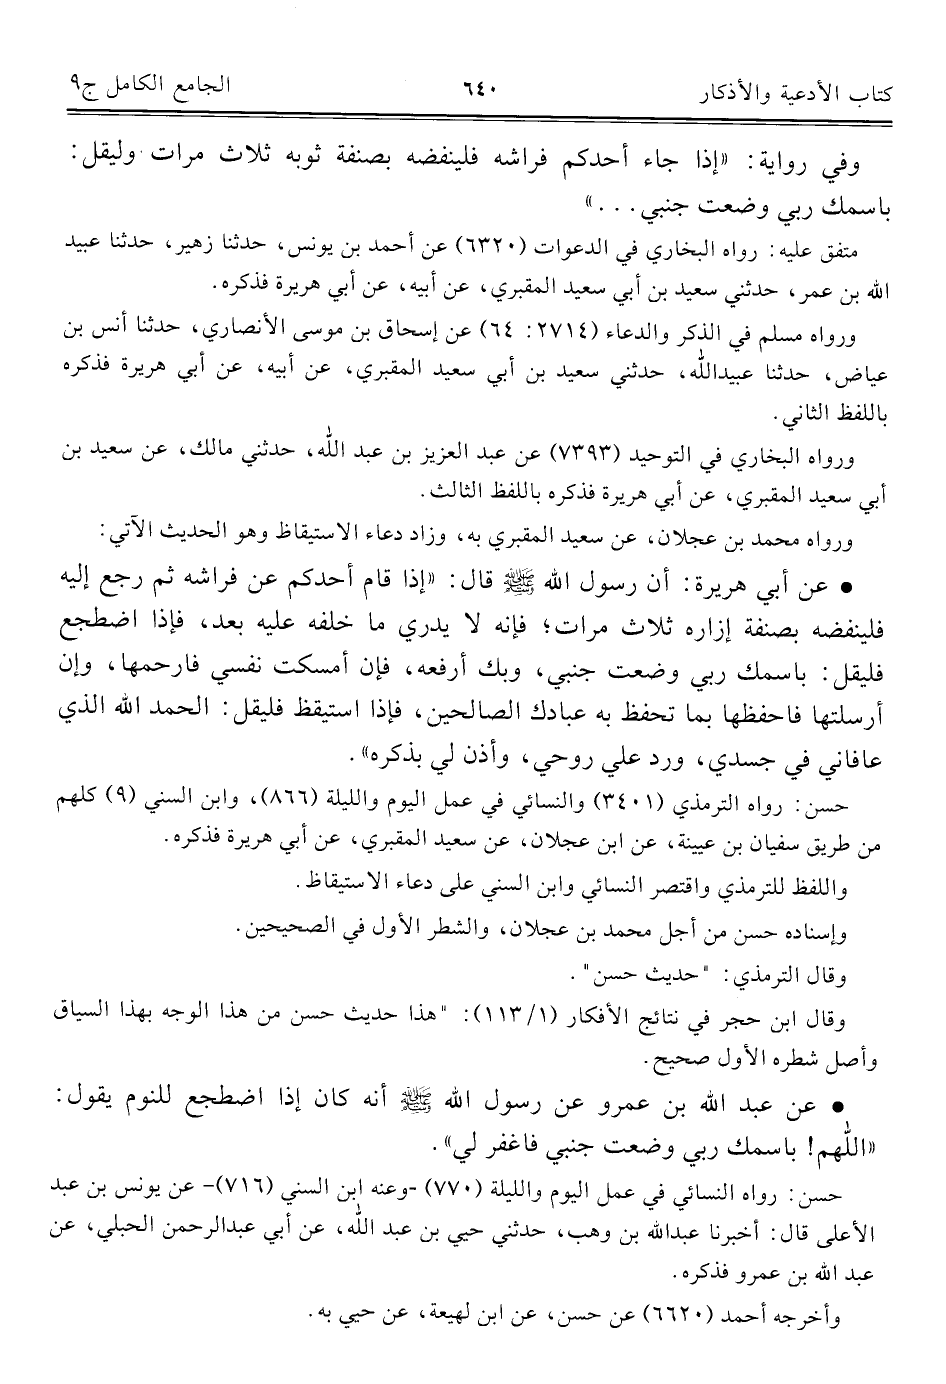 كتاب الأدعية والأذكار ٦٤٠ الجامع الكامل ج٩
وفي رواية: «إذا جاء أحدكم فراشه فلينفضه بصنفة ثوبه ثلاث مرات وليقل:
باسمك ربي وضعت جنبي...»
متفق عليه: رواه البخاري في الدعوات (٦٣٢٠) عن أحمد بن يونس، حدثنا زهير، حدثنا عبيد
الله بن عمر، حدثني سعيد بن أبي سعيد المقبري، عن أبيه، عن أبي هريرة فذكره.
ورواه مسلم في الذكر والدعاء (٢٧١٤: ٦٤) عن إسحاق بن موسى الأنصاري، حدثنا أنس بن
عياض، حدثنا عبيدالله، حدثني سعيد بن أبي سعيد المقبري، عن أبيه، عن أبي هريرة فذكره
باللفظ الثاني.
ورواه البخاري في التوحيد (٧٣٩٣) عن عبد العزيز بن عبد الله، حدثني مالك، عن سعيد بن
أبي سعيد المقبري، عن أبي هريرة فذكره باللفظ الثالث.
ورواه محمد بن عجلان، عن سعيد المقبري به، وزاد دعاء الاستيقاظ وهو الحديث الآتي:
• عن أبي هريرة: أن رسول الله ﷺ قال: «إذا قام أحدكم عن فراشه ثم رجع إليه
فلينفضه بصنفة إزاره ثلاث مرات؛ فإنه لا يدري ما خلفه عليه بعد، فإذا اضطجع
فليقل: باسمك ربي وضعت جنبي، وبك أرفعه، فإن أمسكت نفسي فارحمها، وإن
أرسلتها فاحفظها بما تحفظ به عبادك الصالحين، فإذا استيقظ فليقل: الحمد الله الذي
عافاني في جسدي، ورد علي روحي، وأذن لي بذكره».
حسن: رواه الترمذي (٣٤٠١) والنسائي في عمل اليوم والليلة (٨٦٦)، وابن السني (٩) كلهم
من طريق سفيان بن عيينة، عن ابن عجلان، عن سعيد المقبري، عن أبي هريرة فذكره.
واللفظ للترمذي واقتصر النسائي وابن السني على دعاء الاستيقاظ.
وإسناده حسن من أجل محمد بن عجلان، والشطر الأول في الصحيحين.
وقال الترمذي: "حديث حسن".
وقال ابن حجر في نتائج الأفكار (١/١١٣): "هذا حديث حسن من هذا الوجه بهذا السياق
وأصل شطره الأول صحيح.
• عن عبد الله بن عمرو عن رسول الله ﷺ أنه كان إذا اضطجع للنوم يقول:
«اللهم! باسمك ربي وضعت جنبي فاغفر لي».
حسن: رواه النسائي في عمل اليوم والليلة (٧٧٠) -وعنه ابن السني (٧١٦)- عن يونس بن عبد
الأعلى قال: أخبرنا عبدالله بن وهب، حدثني حيي بن عبد الله، عن أبي عبدالرحمن الحبلي، عن
عبد الله بن عمرو فذكره.
وأخرجه أحمد (٦٦٢٠) عن حسن، عن ابن لهيعة، عن حيي به.